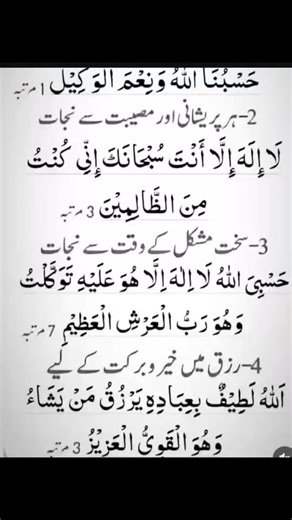 حَسْبُنَا اللهُ وَنِعْمَ الْوَكِيْلُ 1 مرتبہ
2-ہر پریشانی اور مصیبت سے نجات
لَا إِلٰهَ إِلَّا أَنْتَ سُبْحَانَكَ إِنِّي كُنْتُ
مِنَ الظَّالِمِيْنَ 3 مرتبہ
3-سخت مشکل کے وقت سے نجات
حَسْبِيَ اللهُ لَا اِلٰهَ اِلَّا هُوَ عَلَيْهِ تَوَكَّلْتُ
وَهُوَ رَبُّ الْعَرْشِ الْعَظِيْمِ 7 مرتبہ
4-رزق میں خیر و برکت کے لیے
اَللهُ لَطِيْفٌ بِعِبَادِهٖ يَرْزُقُ مَنْ يَشَاءُ
وَهُوَ الْقَوِيُّ الْعَزِيْزُ 3 مرتبہ